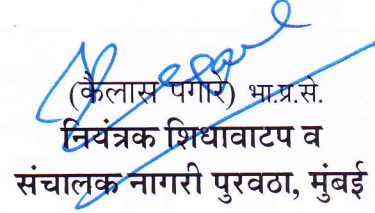 (कैलास पगारे) भा.प्र.से.
नियंत्रक शिधावाटप व
संचालक नागरी पुरवठा, मुंबई